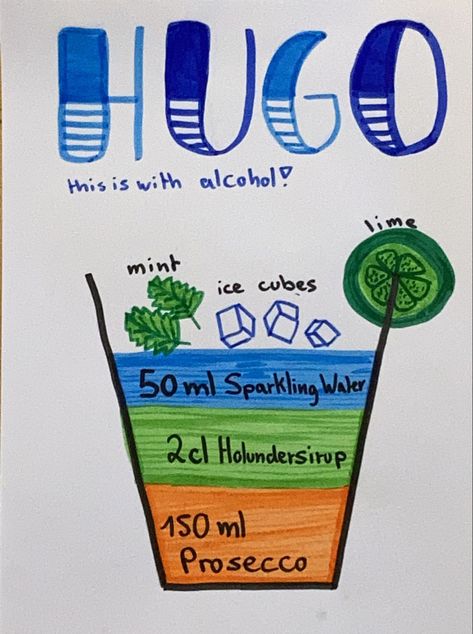 HUGO
this is with alcohol!
lime
mint
ice cubes
50 ml Sparkling Water
2cl Holundersirup
150 ml
Prosecco